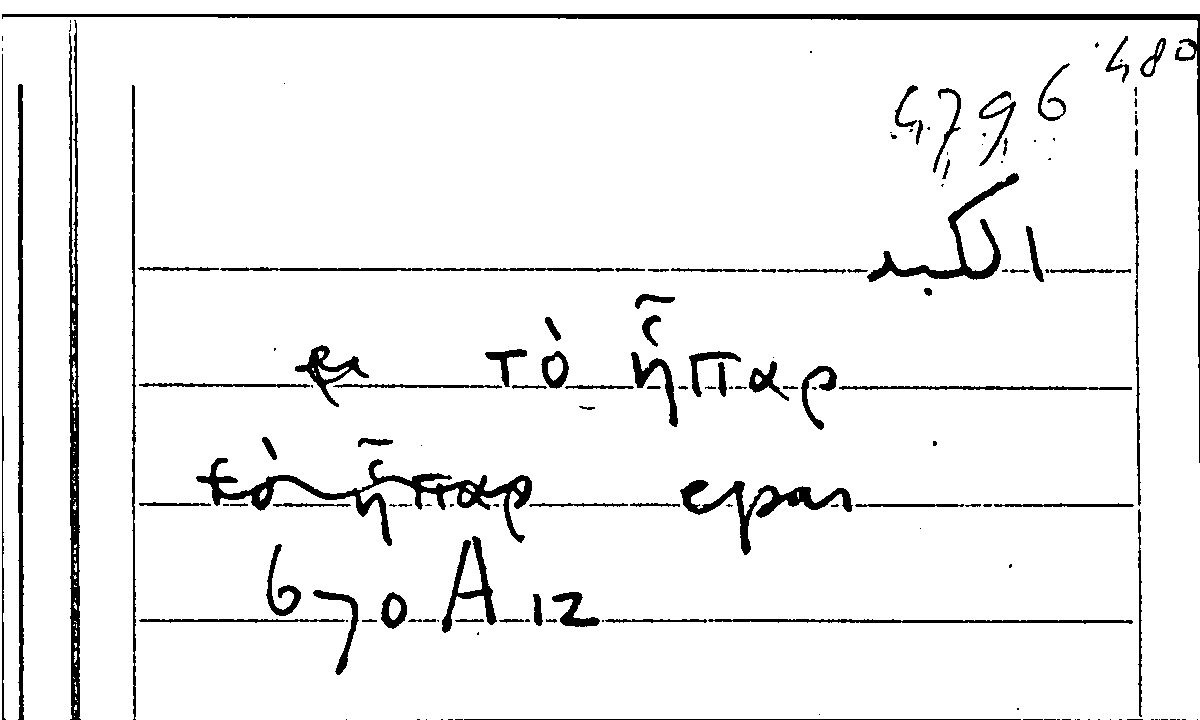 480
4796
الكبد
τὸ ἧπαρ
τὸ ἧπαρ epan
670 A 12